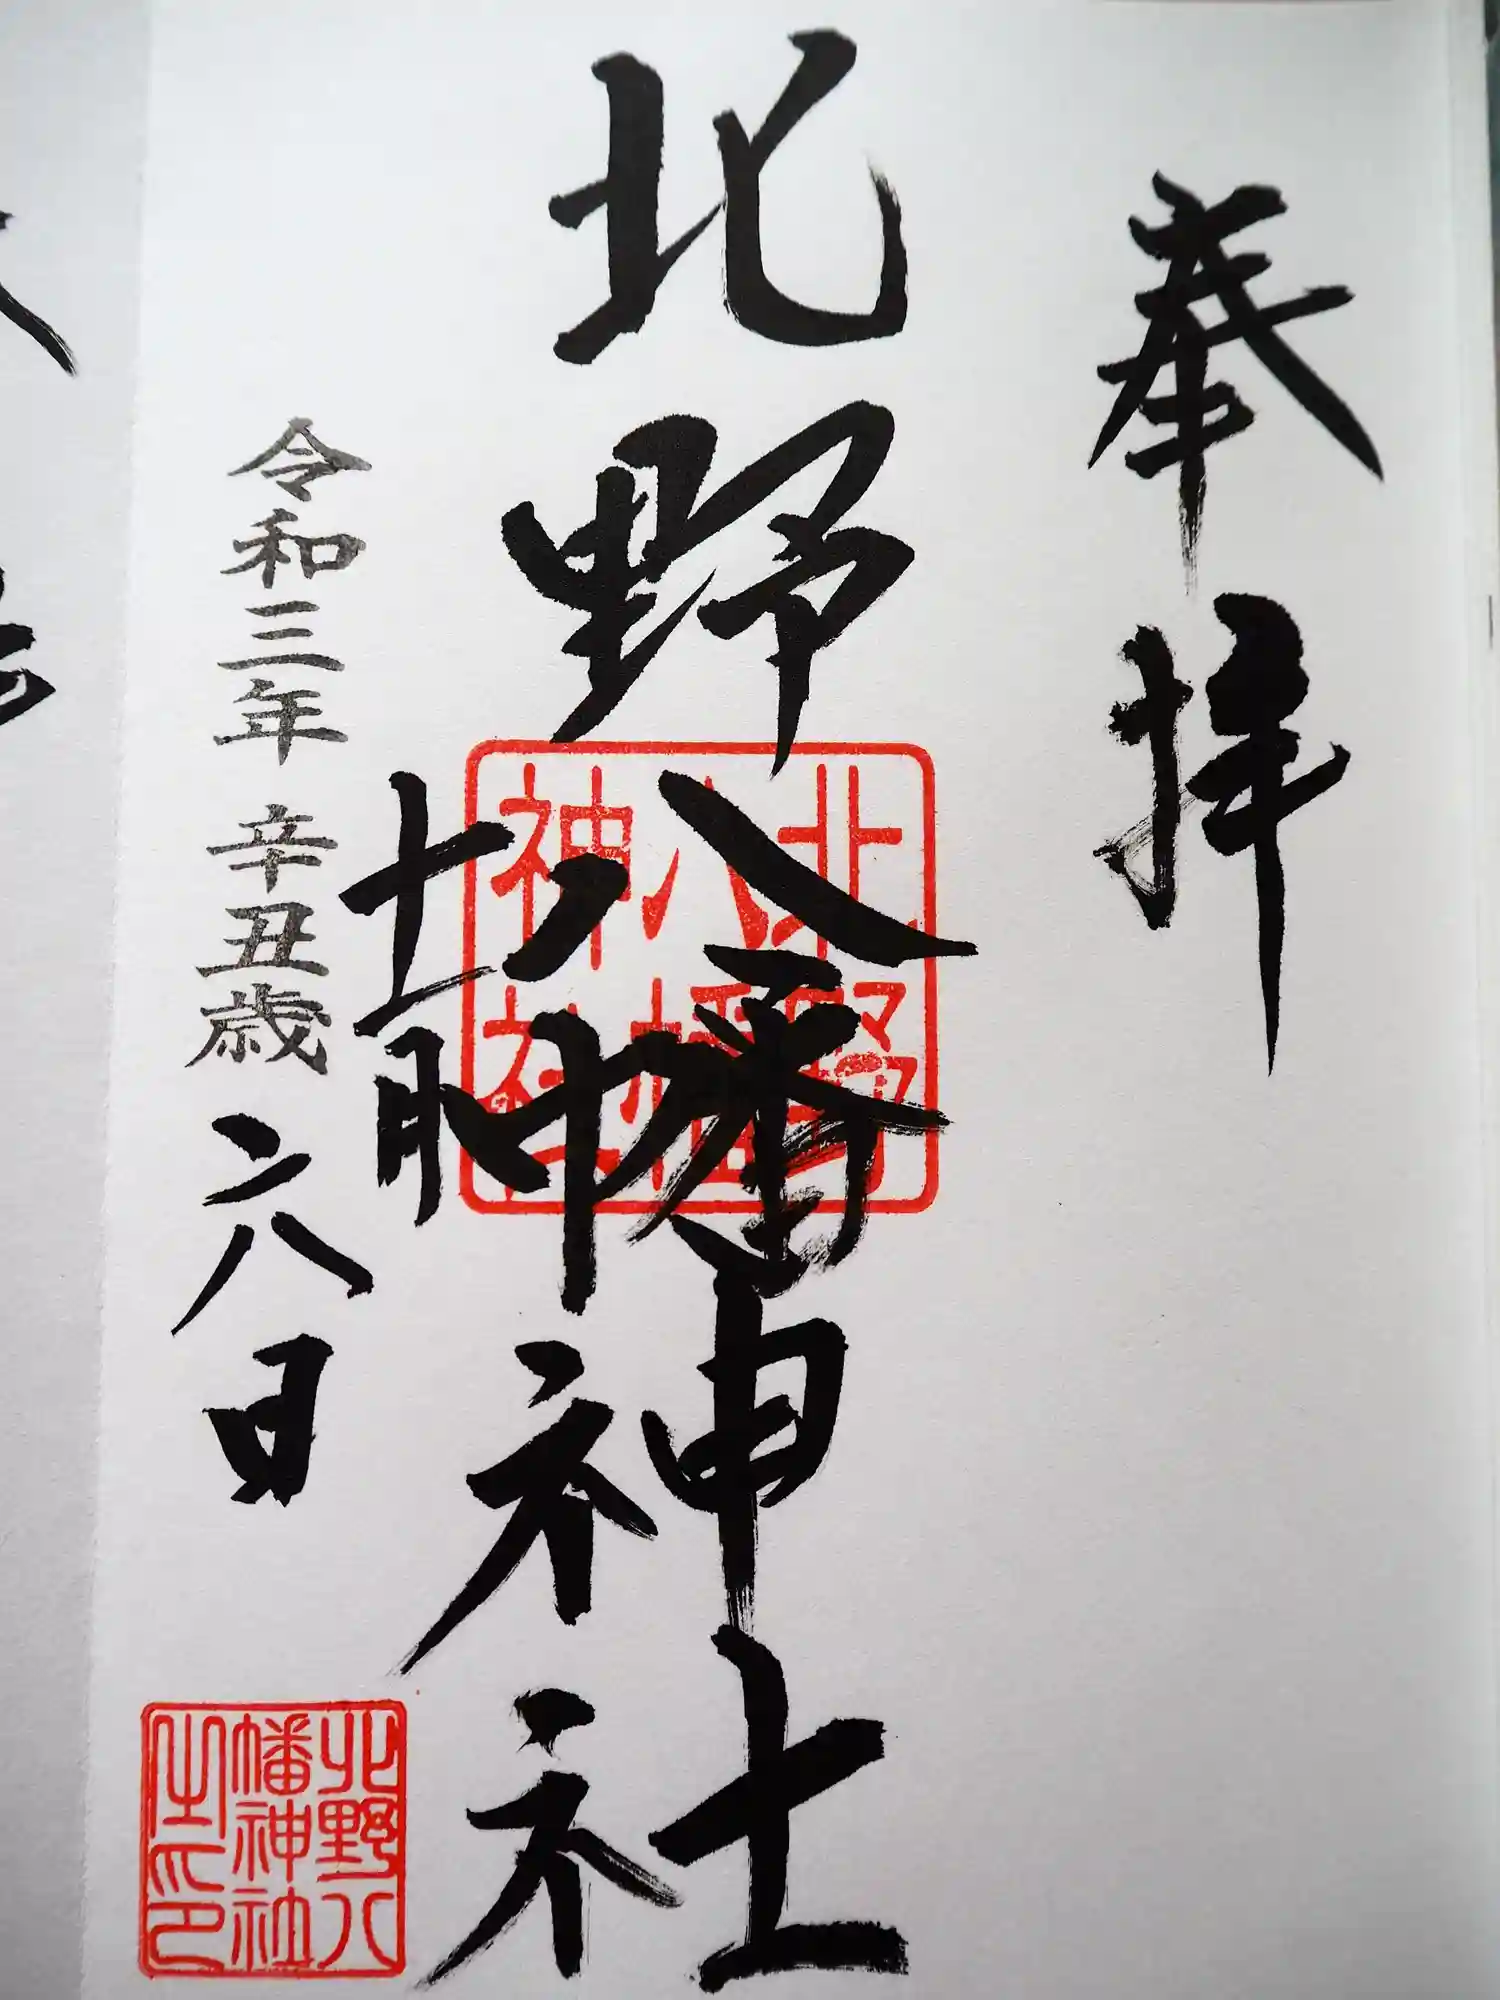 奉拝
北野八幡神社
北野
八幡
神社
令和三年 辛丑歳
十一月
六日
北野八
幡神社
之印